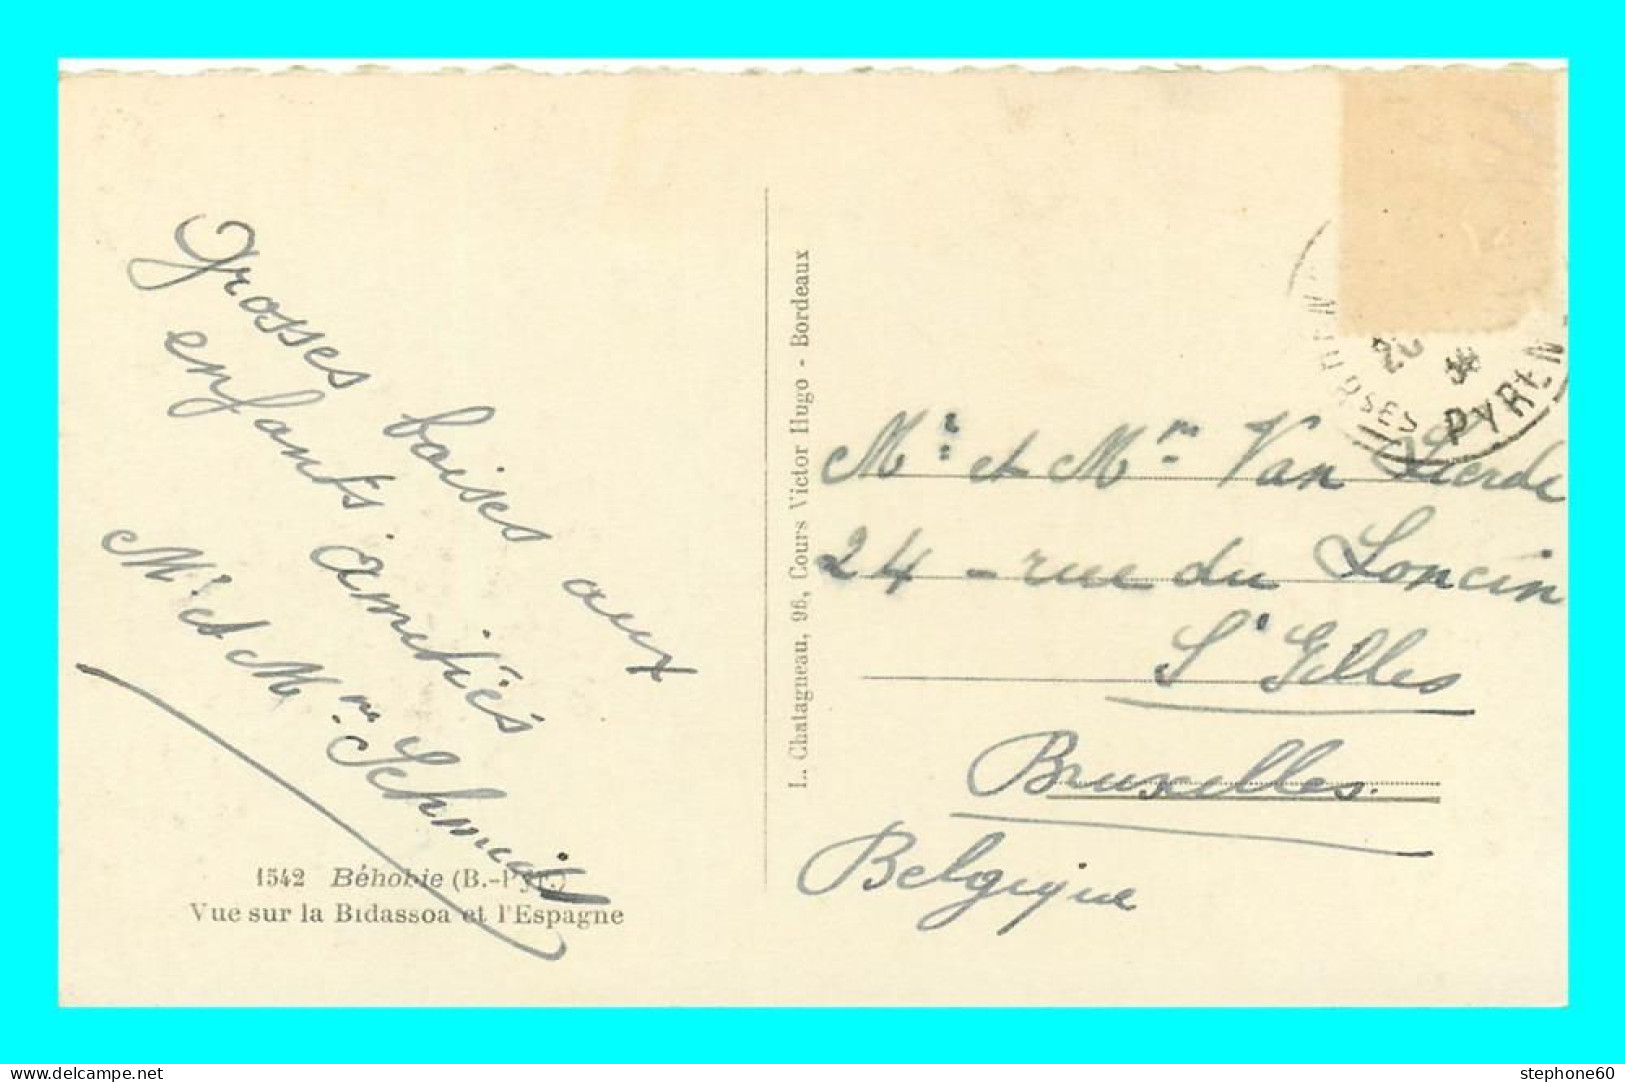 Grosses baises aux
enfants amitiés
Mr et Mme Schmeitz
1542 Béhobie (B.-Pyr.)
Vue sur la Bidassoa et l'Espagne
L. Chatagneau, 96, Cours Victor Hugo - Bordeaux
PYREN
Mr et Mme Van Lierde
24 - rue du Loncin
St Gilles
Bruxelles.
Belgique
www.delcampe.net
stephone60